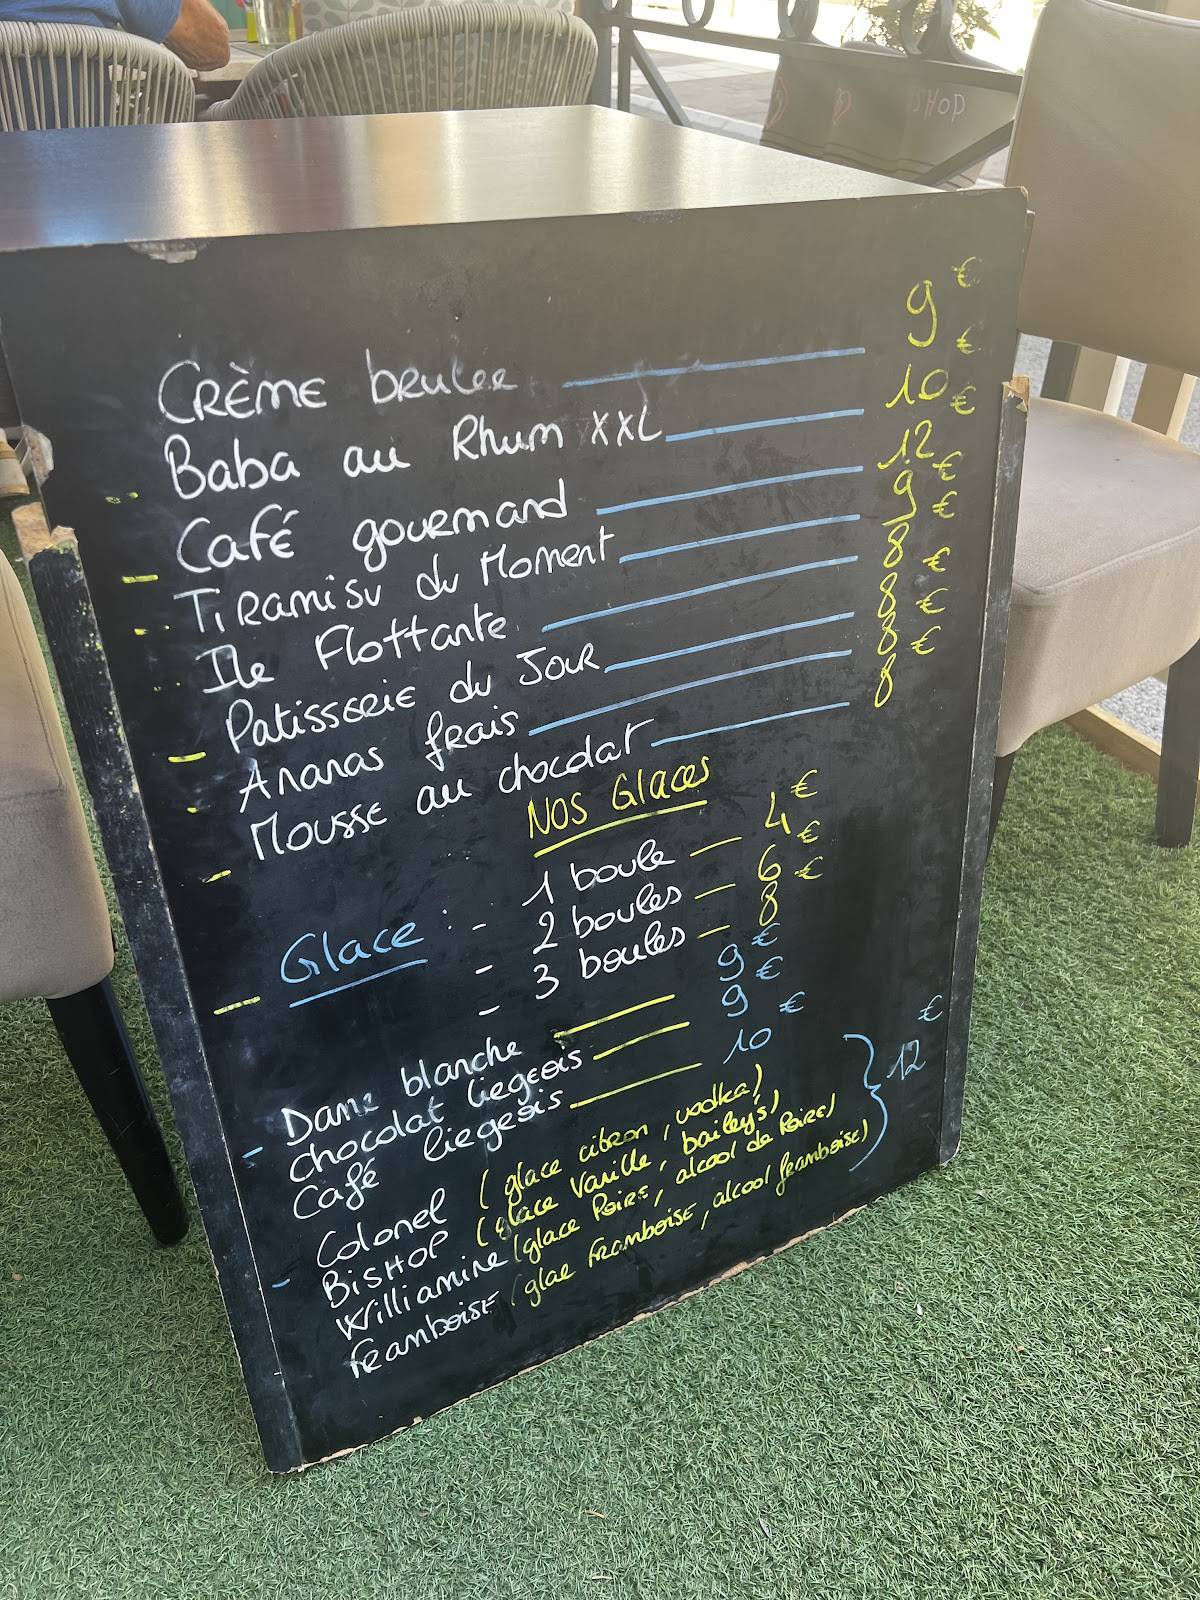 SHOP
Crème brulee 9€
Baba au Rhum XXL 10€
- Café gourmand 12€
- Tiramisu du Moment 9€
- Ile Flottante 8€
- Patisserie du Jour 8€
- Ananas frais 8€
- Mousse au chocolat 8€
Nos Glaces
- Glace : - 1 boule - 4€
- 2 boules - 6€
- 3 boules - 8€
- Dame blanche 9€
chocolat liegeois 9€
Café liegeois 10€
- Colonel (glace citron, vodka)
Bishop (glace Vanille, bailey's)
Williamine (glace Poire, alcool de Poire)
framboise (glace framboise, alcool framboise) } 12€